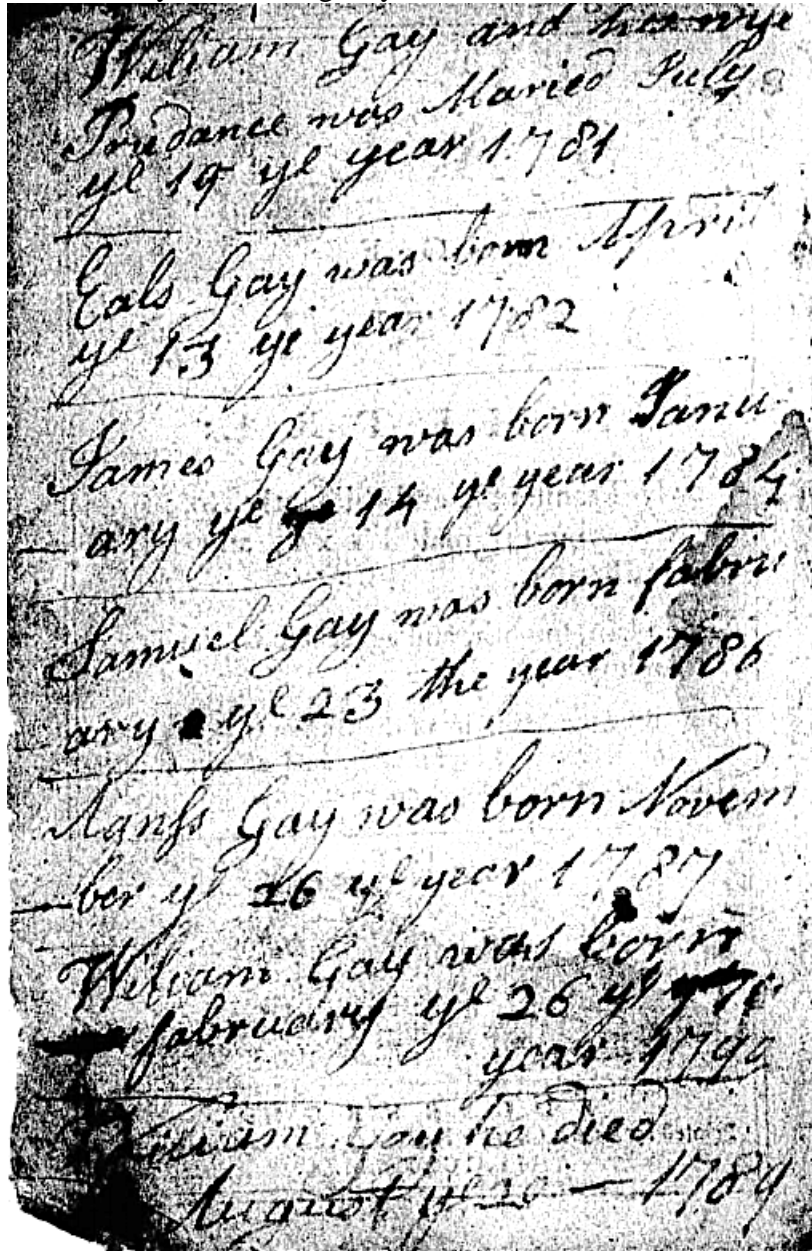 William Gay and his wife
Prudance was Maried July
ye 19 ye year 1781
Eals Gay was born April
ye 13 ye year 1782
James Gay was born Janu
ary ye 14 ye year 1784
Samuel Gay was born fabru
ary ye 23 the year 1786
Gay was born Novem
ber ye 26 ye year 1787
William Gay was born
february ye 26 ye
year 1790
William Gay he died
August ye 20 — 1789